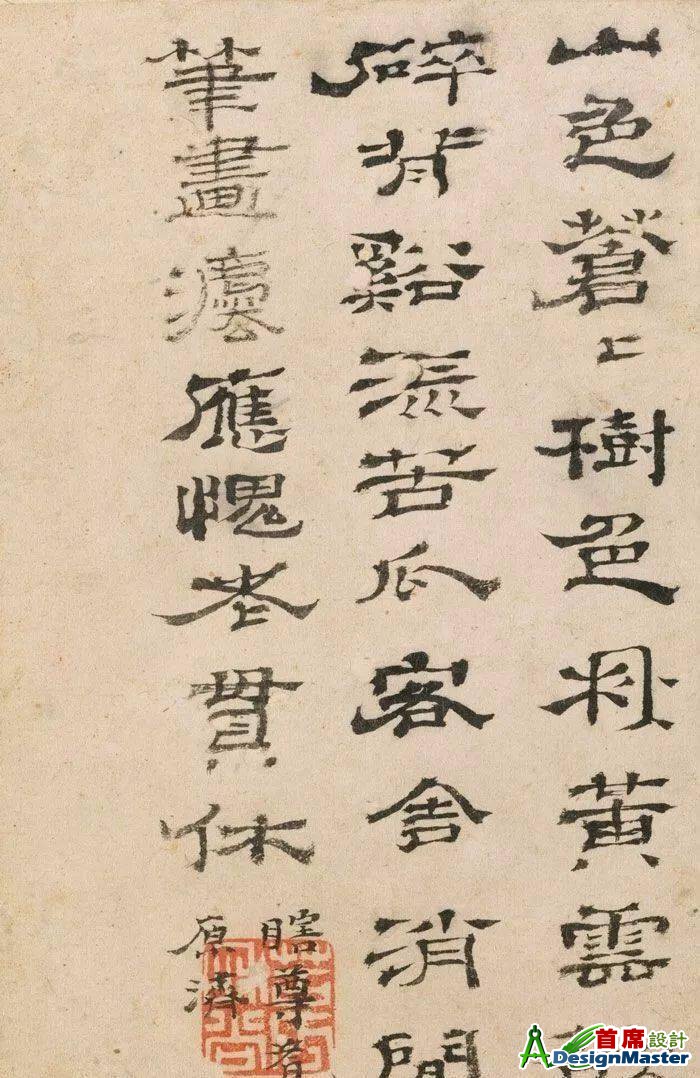 山色蒼〻樹色秋黃雲
碎背谿流苦瓜客舍消閒
筆畫灋應愧老貫休
瞎尊者
原濟
首席設計
DesignMaster